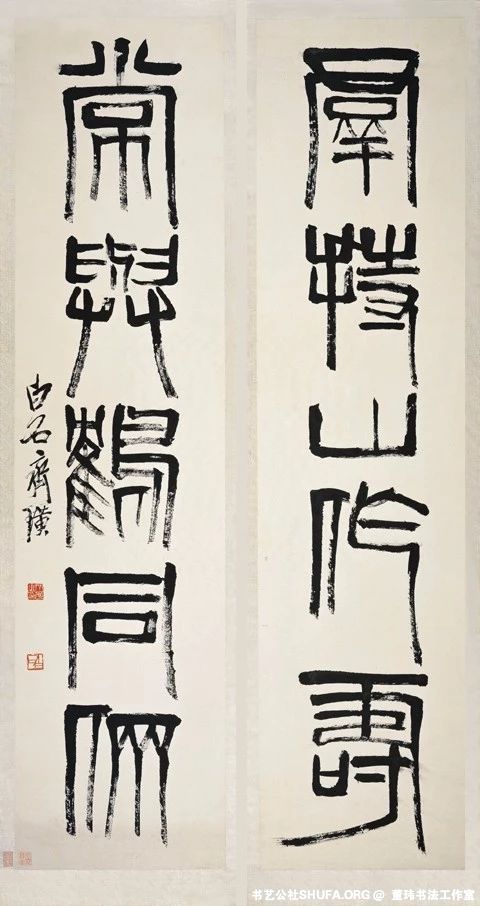 羣持山作壽
常與鶴同倆
白石齊璜
书艺公社SHUFA.ORG @ 董玮书法工作室